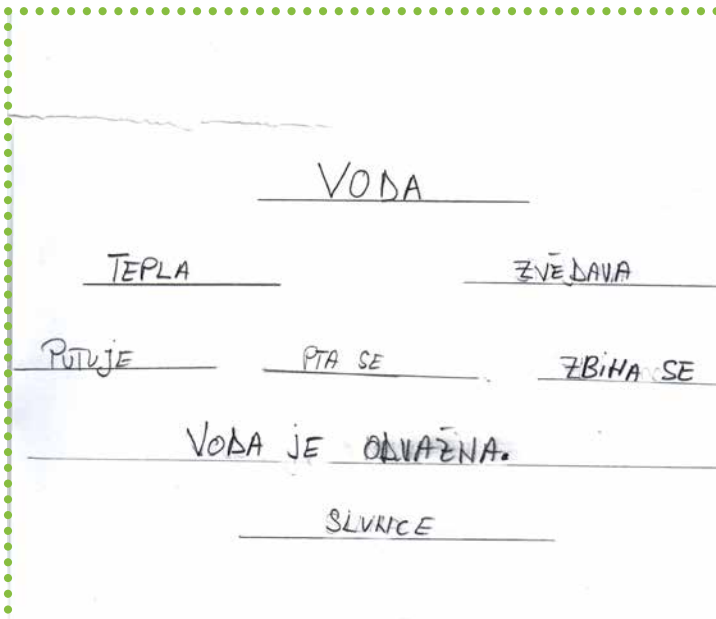 VODA
TEPLA ZVĚDAVA
PUTUJE PTA SE ZBIHA SE
VODA JE ODVAŽNA.
SLUNCE